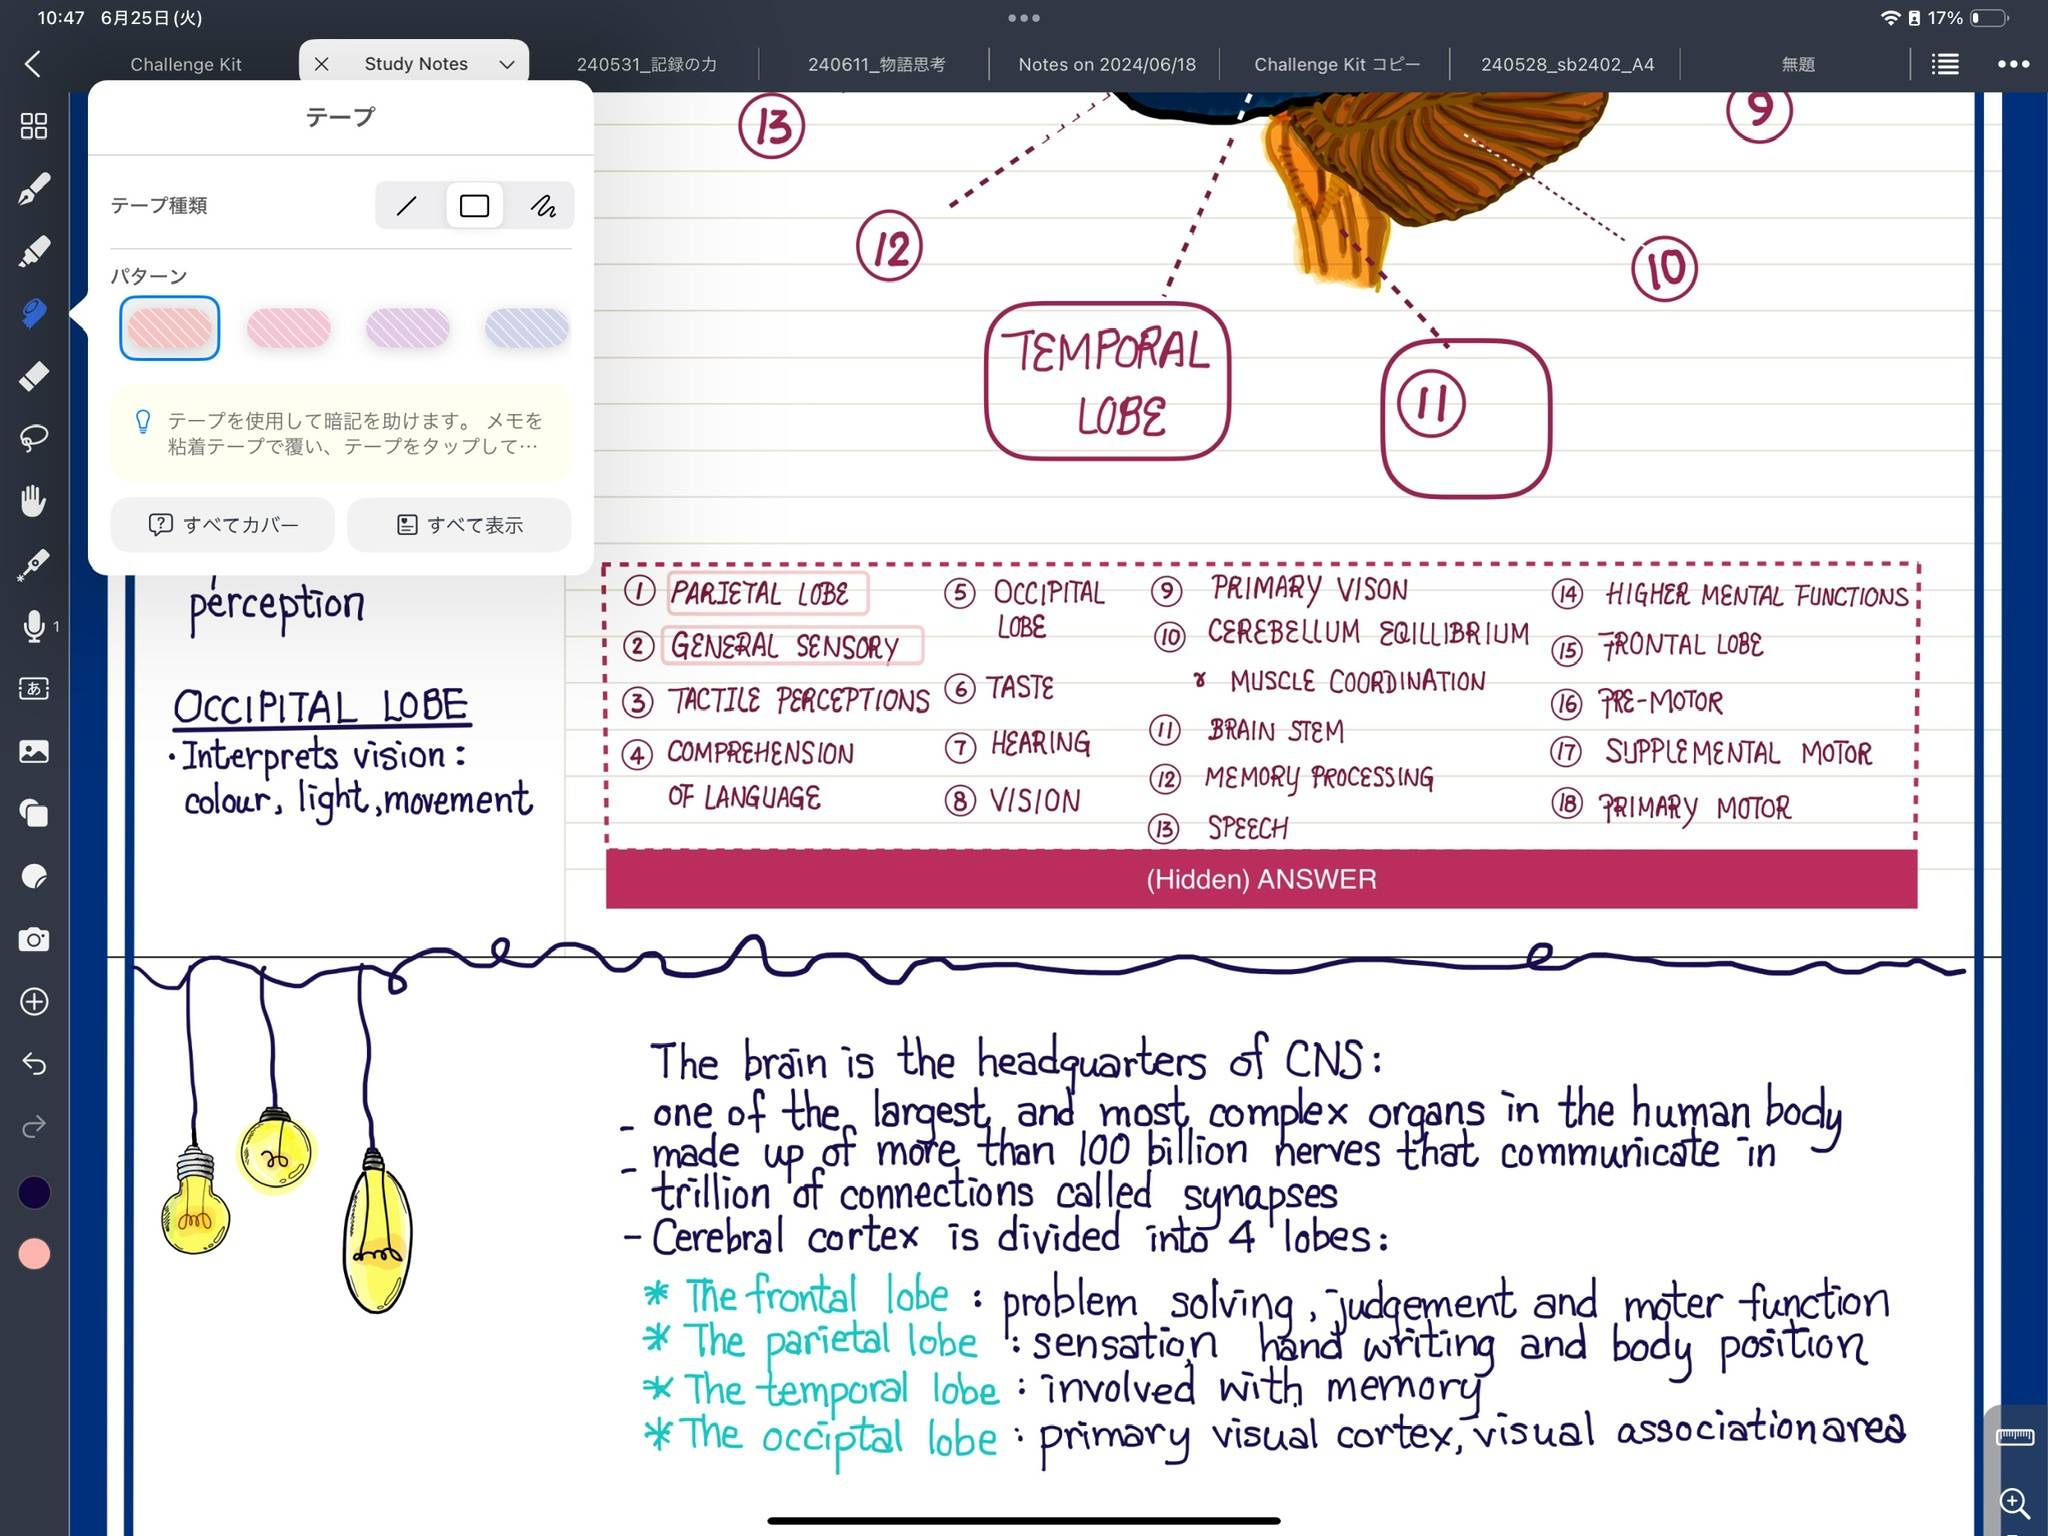 10:47 6月25日(火)
17%
Challenge Kit
Study Notes
240531_記録の力
240611_物語思考
Notes on 2024/06/18
Challenge Kit コピー
240528_sb2402_A4
無題
テープ
テープ種類
パターン
テープを使用して暗記を助けます。 メモを
粘着テープで覆い、テープをタップして…
すべてカバー
すべて表示
1
あ
perception
OCCIPITAL LOBE
・Interprets vision:
colour, light, movement
13
12
9
10
TEMPORAL
LOBE
11
① PARIETAL LOBE
② GENERAL SENSORY
③ TACTILE PERCEPTIONS
④ COMPREHENSION
OF LANGUAGE
⑤ OCCIPITAL
LOBE
⑥ TASTE
⑦ HEARING
⑧ VISION
⑨ PRIMARY VISON
⑩ CEREBELLUM EQILLIBRIUM
& MUSCLE COORDINATION
⑪ BRAIN STEM
⑫ MEMORY PROCESSING
⑬ SPEECH
⑭ HIGHER MENTAL FUNCTIONS
⑮ FRONTAL LOBE
⑯ PRE-MOTOR
⑰ SUPPLEMENTAL MOTOR
⑱ PRIMARY MOTOR
(Hidden) ANSWER
The brain is the headquarters of CNS:
- one of the largest and most complex organs in the human body
- made up of more than 100 billion nerves that communicate in
trillion of connections called synapses
- Cerebral cortex is divided into 4 lobes:
* The frontal lobe : problem solving, judgement and moter function
* The parietal lobe : sensation, hand writing and body position
* The temporal lobe : involved with memory
* The occiptal lobe : primary visual cortex, visual association area